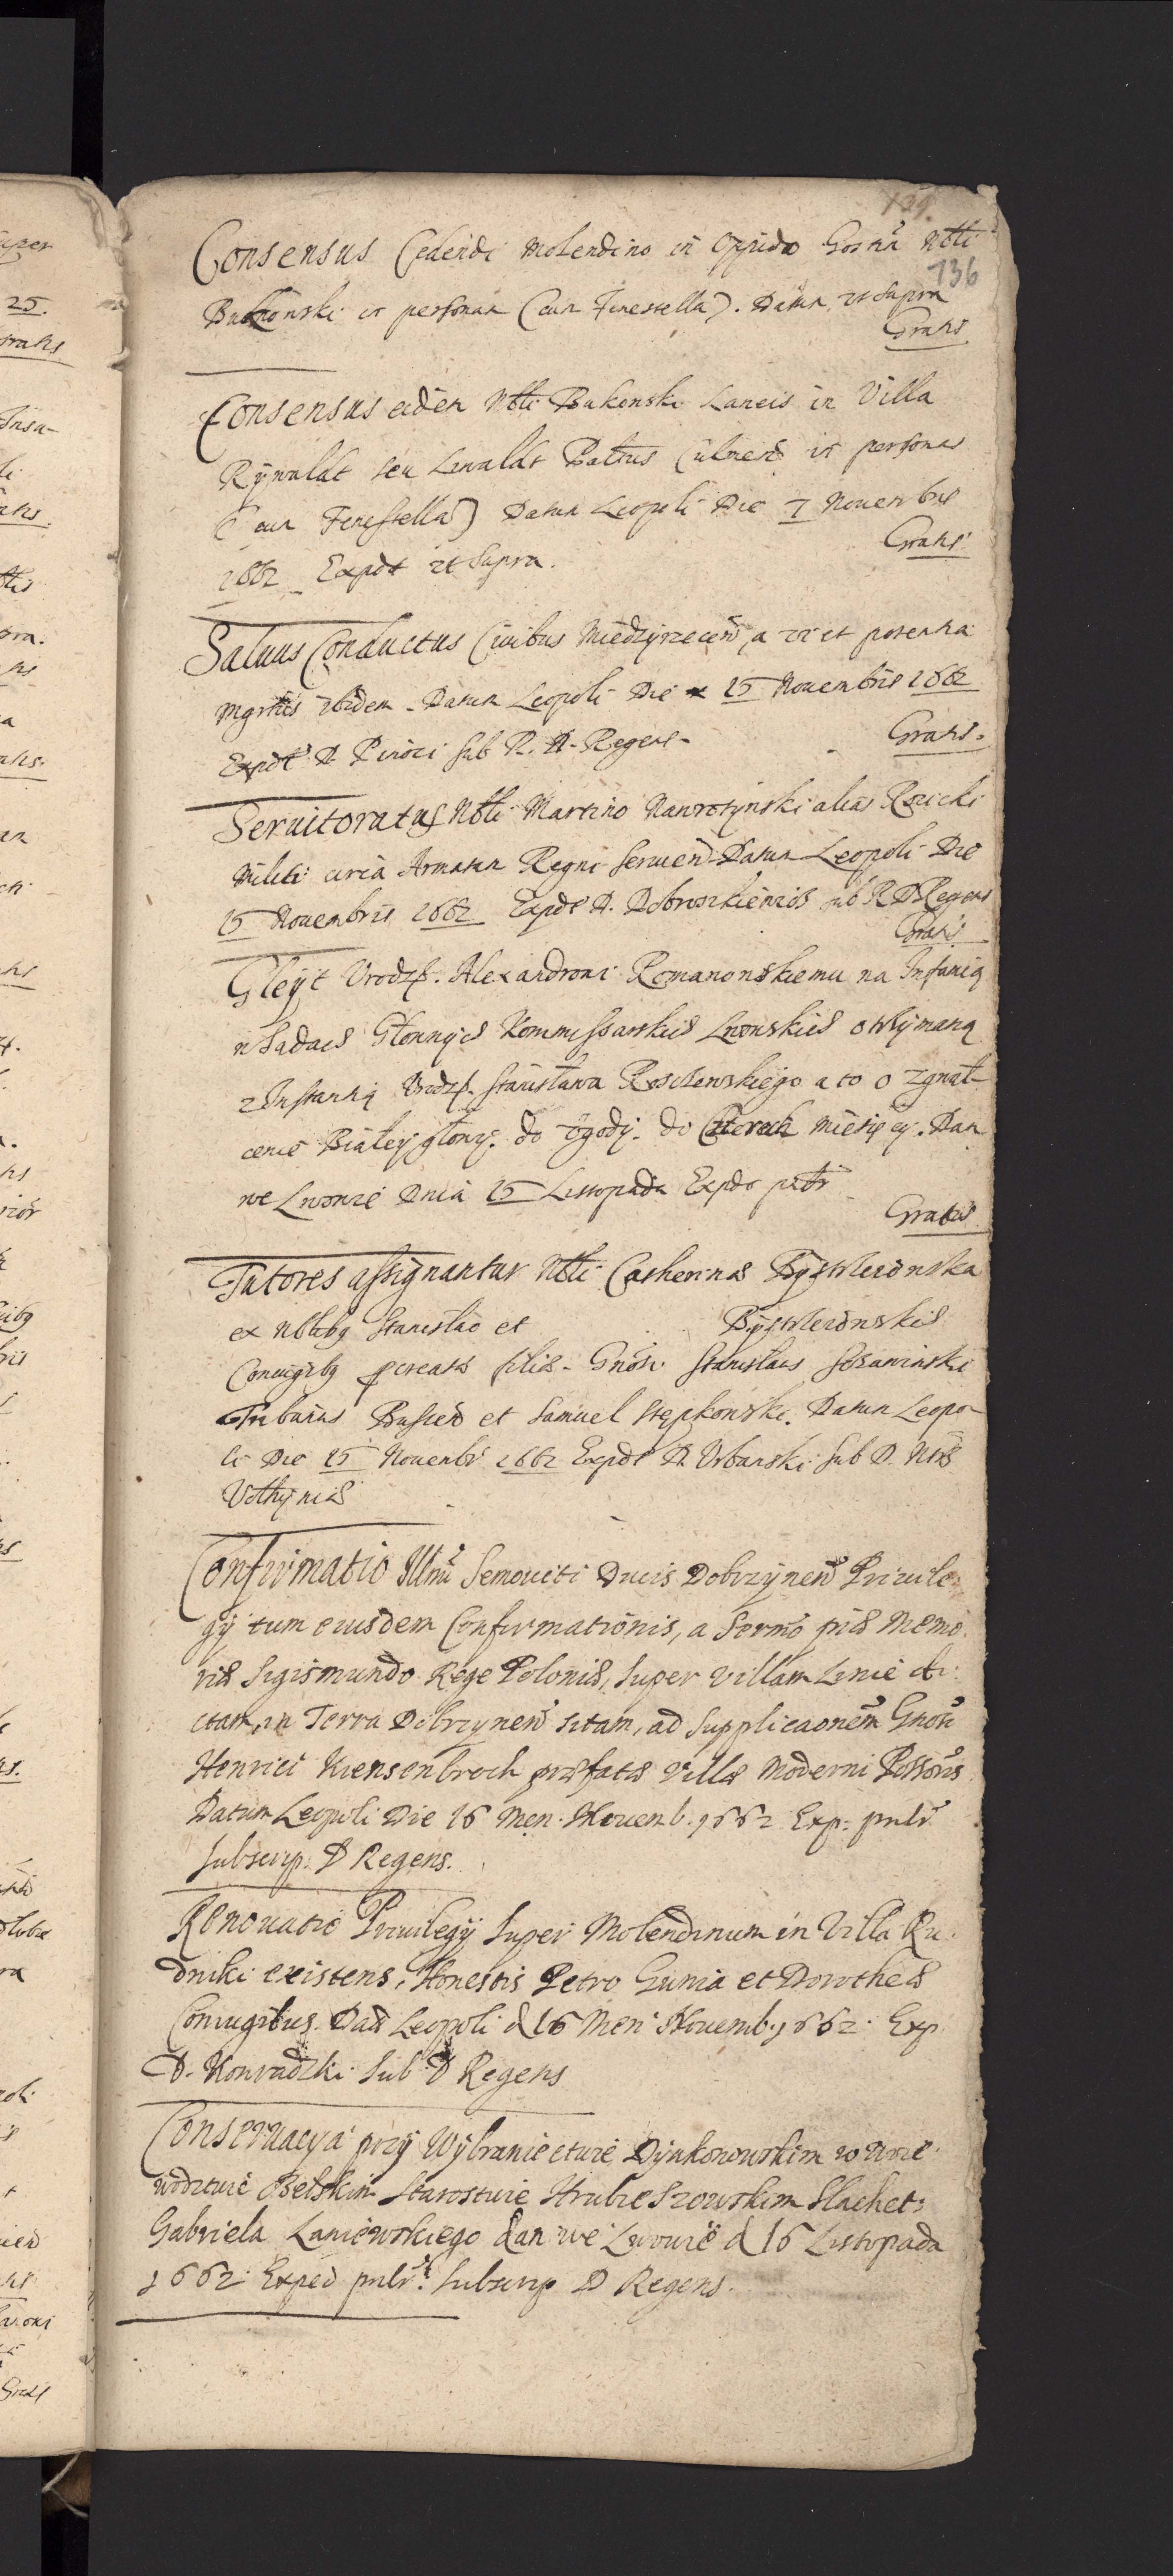 139.
136
Consensus Cedendi Molendino in Oppido Gostin̄ Nbli
Bukonski in personam (cum Fenestella). Datum ut supra
Gratis
Consensus eidem Nbli Bukonski Laneis in Villa
Rynwaldt seu Lewaldt Pal̄tus Culmen̄ in personas
(cum Fenestella) Datum Leopoli Die 7 Nouembris
Gratis
1662 Expdt ut Supra.
Saluus Conductus Ciuibus Miedzyrzecen̄, a vi et potentia
Mgr̄tus ibidem. Datum Leopoli Die 15 Nouembris 1662
Expdt D. Pinoci sub R. D. Regent
Gratis.
Seruitoratus Nbli Martino Nawrotynski alias Rozicki
Militi circa Armatam Regni seruien̄ Datum Leopoli Die
15 Nouembris 1662 Expdt D. Dobroszkiewicz sub R D Regens
Gratis
Gleyt Vrodz. Alexandrowi Romanowskiemu na Infamią
w Sadach Głownych Kommissarskich Lwowskich otrzymaną
z Instantij Vrodz. Stanisława Roscienskiego a to o zgwał-
cenie Białey głowy. do zgody. do Czterech Miesięcy. Dan
we Lwowie Dnia 15 Listopada Expdo
Gratis
Tutores assignantur Nbli Catherinæ Bystrzeiowska
ex Nblibg Stanislao et
Bystrzeiowskis
Coniugibg procreatæ filiæ. Gn̄osi Stanislaus Szrawinski
Tribunus Buscen̄ et Samuel Stępkowski. Datum Leopo-
li Die 15 Nouembr 1662 Expdt D. Vrbanski sub D. Nr̄æ
Volhyniæ
Confirmatio Illm̄i Semouiti Ducis Dobrzynen̄ Priuile-
gÿ tum eiusdem Confirmationis, a Serm̄o piæ Memo-
riæ Sigismundo Rege Poloniæ, super villam Linie di-
ctam, in Terra Dobrzynen̄ sitam, ad supplicaonem Gn̄osi
Henrici Kiensenbroch præfatæ villæ Moderni Poss̄oris
Datum Leopoli Die 16 Men. Nouemb. 1662 Exp: pulr
subscrip. D Regens.
Renouatio Priuilegÿ super Molendinum in Villa Ru-
dniki existens, Honestis Petro Gunia et Dorotheæ
Coniugibus. Dat Leopoli d 16 Men Nouemb. 1662. Exp.
D. Konradzki Sub D Regens
Conseruacya przy Wybraniectwie Dynkowowskim w Woie-
wodztwie Bełskim Starostwie Hrubieszowskim Slachet:
Gabriela Laniewskiego dan we Lwowie d 16 Listopada
1662. Exped pulr. Subscrip D Regens.